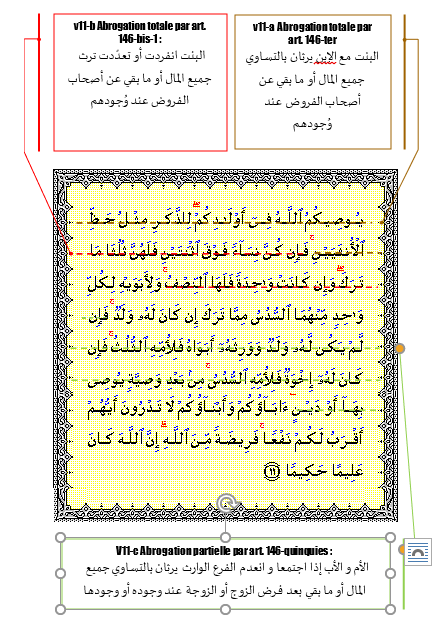 v11-b Abrogation totale par art.
146-bis-1 :
البنت انفردت أو تعدّدت ترث
جميع المال أو ما بقي عن أصحاب
الفروض عند وُجودهم
v11-a Abrogation totale par
art. 146-ter
البنت مع الابن يرثان بالتساوي
جميع المال أو ما بقي عن
أصحاب الفروض عند
وُجودهم
يُوصِيكُمُ ٱللَّهُ فِىٓ أَوْلَٰدِكُمْ ۖ لِلذَّكَرِ مِثْلُ حَظِّ
ٱلْأُنثَيَيْنِ ۚ فَإِن كُنَّ نِسَآءً فَوْقَ ٱثْنَتَيْنِ فَلَهُنَّ ثُلُثَا مَا
تَرَكَ ۖ وَإِن كَانَتْ وَٰحِدَةً فَلَهَا ٱلنِّصْفُ ۚ وَلِأَبَوَيْهِ لِكُلِّ
وَٰحِدٍ مِّنْهُمَا ٱلسُّدُسُ مِمَّا تَرَكَ إِن كَانَ لَهُۥ وَلَدٌ ۚ فَإِن
لَّمْ يَكُن لَّهُۥ وَلَدٌ وَوَرِثَهُۥٓ أَبَوَاهُ فَلِأُمِّهِ ٱلثُّلُثُ ۚ فَإِن
كَانَ لَهُۥٓ إِخْوَةٌ فَلِأُمِّهِ ٱلسُّدُسُ ۚ مِنۢ بَعْدِ وَصِيَّةٍ يُوصِى
بِهَآ أَوْ دَيْنٍ ۗ ءَابَآؤُكُمْ وَأَبْنَآؤُكُمْ لَا تَدْرُونَ أَيُّهُمْ
أَقْرَبُ لَكُمْ نَفْعًا ۚ فَرِيضَةً مِّنَ ٱللَّهِ ۗ إِنَّ ٱللَّهَ كَانَ
عَلِيمًا حَكِيمًا ١١
V11-c Abrogation partielle par art. 146-quinquies :
الأم و الأب إذا اجتمعا و انعدم الفرع الوارث يرثان بالتساوي جميع
المال أو ما بقي بعد فرض الزوج أو الزوجة عند وجوده أو وجودها